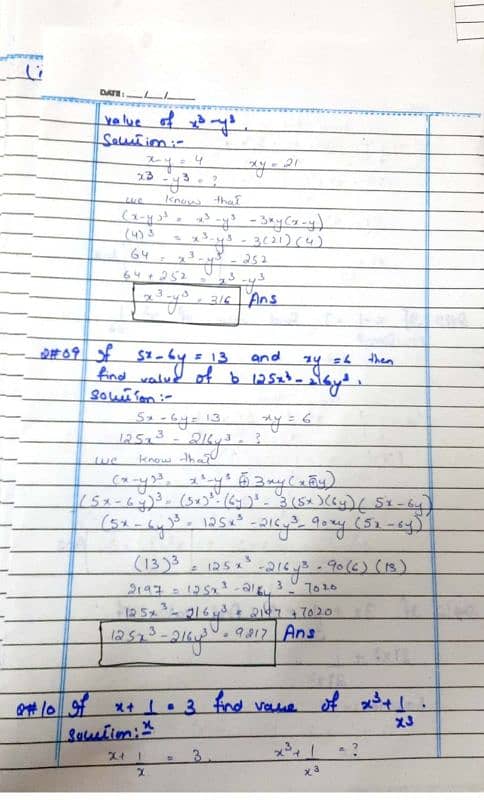 (i
DATE: __/__/__
value of x³-y³.
Solution:-
x-y = 4 xy = 21
x³ - y³ = ?
we know that
(x-y)³ = x³-y³ - 3xy(x-y)
(4)³ = x³-y³ - 3(21)(4)
64 = x³-y³ - 252
64 + 252 = x³-y³
x³-y³ = 316 Ans
Q#09 If 5x-6y = 13 and xy = 6 then
find value of b 125x³ - 216y³.
Solution:-
5x - 6y = 13 xy = 6
125x³ - 216y³ = ?
we know that
(x-y)³ = x³-y³ 3xy(x y)
(5x-6y)³ = (5x)³-(6y)³ - 3(5x)(6y)(5x-6y)
(5x-6y)³ = 125x³-216y³-90xy(5x-6y)
(13)³ = 125x³-216y³-90(6)(13)
2197 = 125x³-216y³-7020
125x³-216y³ = 2197+7020
125x³-216y³ = 9217 Ans
Q#10 If x+1/x = 3 find value of x³+1/x³.
Solution:-
x+1/x = 3. x³+1/x³ = ?